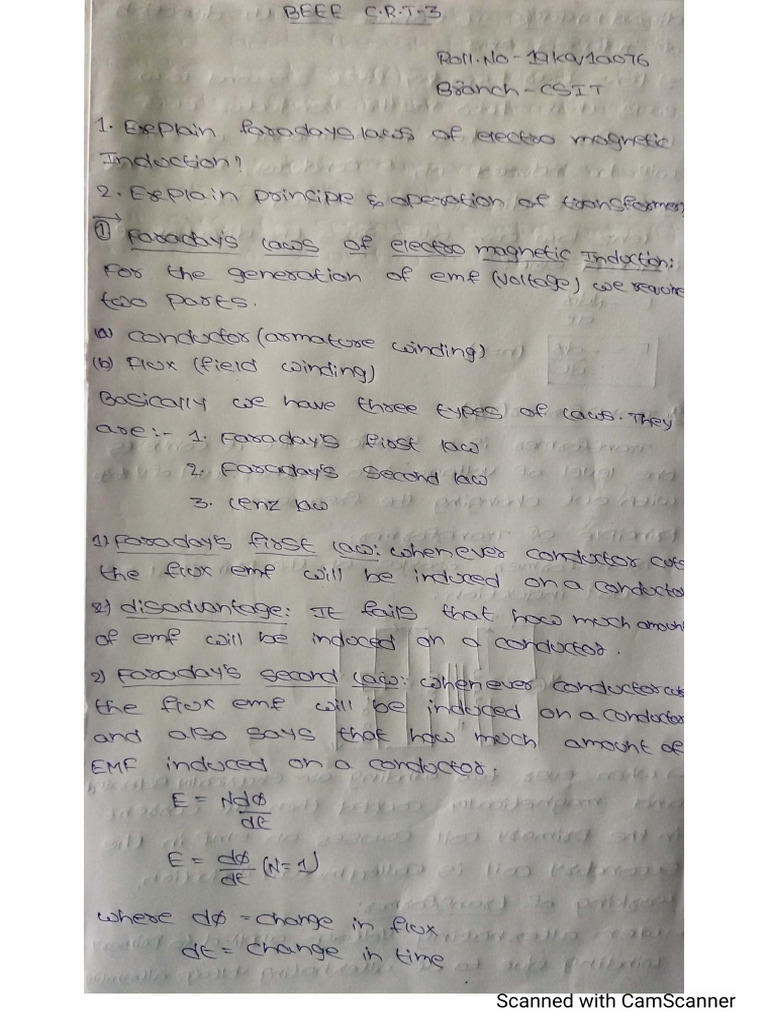 BEEE C.R.T-3
Roll.No-19KA1A0076
Branch-CSIT
1. Explain faradays laws of electro magnetic
Induction?
2. Explain principle & operation of transformer,
① Faraday's laws of electro magnetic Induction:
For the generation of emf (voltage) we require
two parts.
(a) conductor (armature winding)
(b) flux (field winding)
Basically we have three types of laws. They
are:- 1. Faraday's first law
2. Faraday's second law
3. Lenz law
1) Faraday's first law: whenever conductor cuts
the flux emf will be induced on a conductor
2) disadvantage: It fails that how much amount
of emf will be induced on a conductor.
2) Faraday's second law: whenever conductor cuts
the flux emf will be induced on a conductor
and also says that how much amount of
EMF induced on a conductor.
E = Ndø
dt
E = dø (N=1)
dt
where dø = change in flux
dt = change in time
Scanned with CamScanner